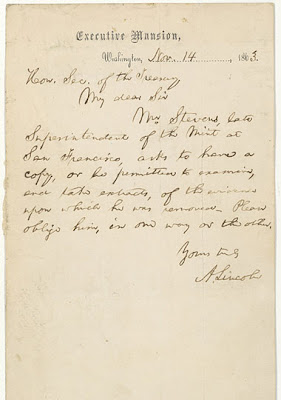 Executive Mansion,
Washington, Nov. 14, 1863.
Hon. Sec. of the Treasury
My dear Sir
Mr. Stevens, late
Superintendent of the Mint at
San Francisco, asks to have a
copy, or be permitted to examine,
and take extracts, of the evidence
upon which he was removed. Please
oblige him in one way or the other.
Yours truly
A. Lincoln